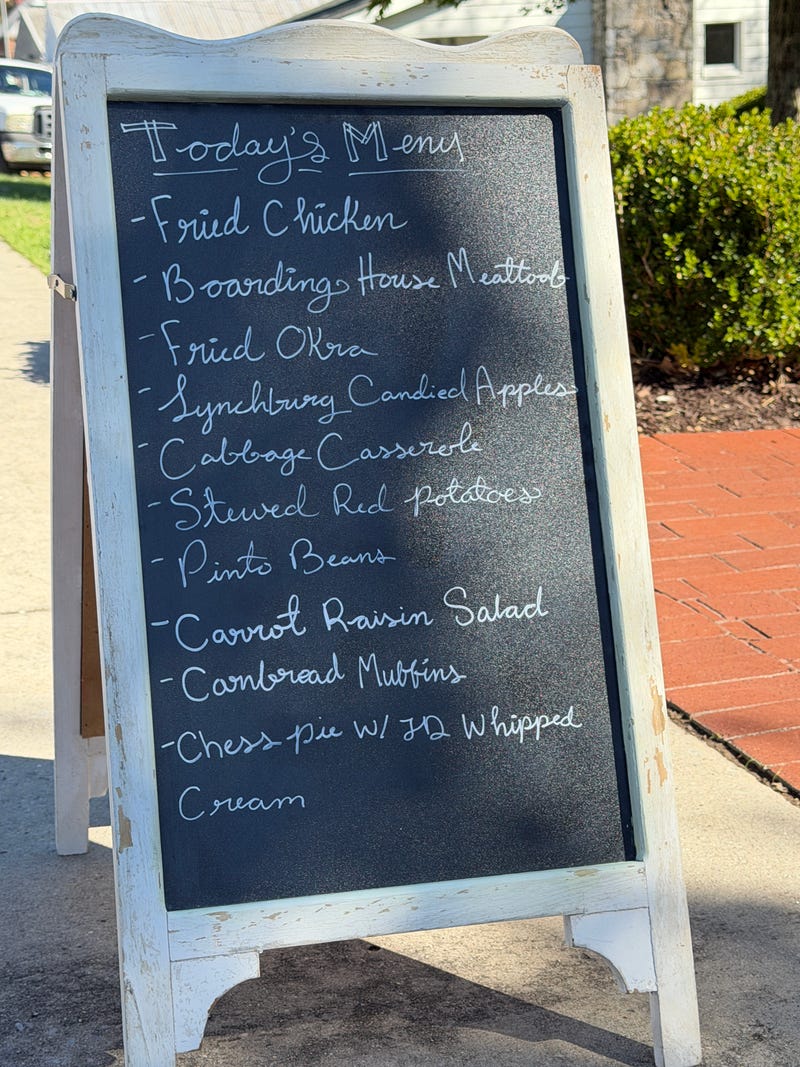 Today's Menu
- Fried Chicken
- Boarding House Meatloaf
- Fried Okra
- Lynchburg Candied Apples
- Cabbage Casserole
- Stewed Red potatoes
- Pinto Beans
- Carrot Raisin Salad
- Cornbread Muffins
- Chess pie W/ JD Whipped
Cream